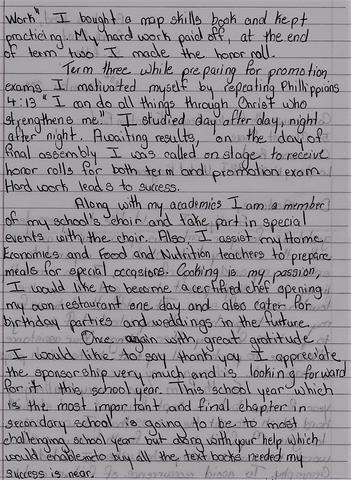 work" I bought a map skills book and kept
practicing. My hard work paid off, at the end
of term two I made the honor roll.
Term three while preparing for promotion
exams I motivated myself by repeating Phillippians
4:13 "I can do all things through Christ who
strengthens me." I studied day after day, night
after night. Awaiting results, on the day of
final assembly I was called on stage to receive
honor rolls for both term and promotion exam.
Hard work leads to success.
Along with my academics I am a member
of my school's choir and take part in special
events with the choir. Also, I assist my Home
Economics and Food and Nutrition teachers to prepare
meals for special occasions. Cooking is my passion,
I would like to become a certified chef opening
my own restaurant one day and also cater for
birthday parties and weddings in the furture.
Once again with great gratitude
I would like to say thank you I appreciate
the sponsorship very much and is looking forward
for it this school year. This school year which
is the most important and final chapter in
secondary school is going to be to most
challenging school year but along with your help which
would enable me to buy all the text books needed my
success is near.